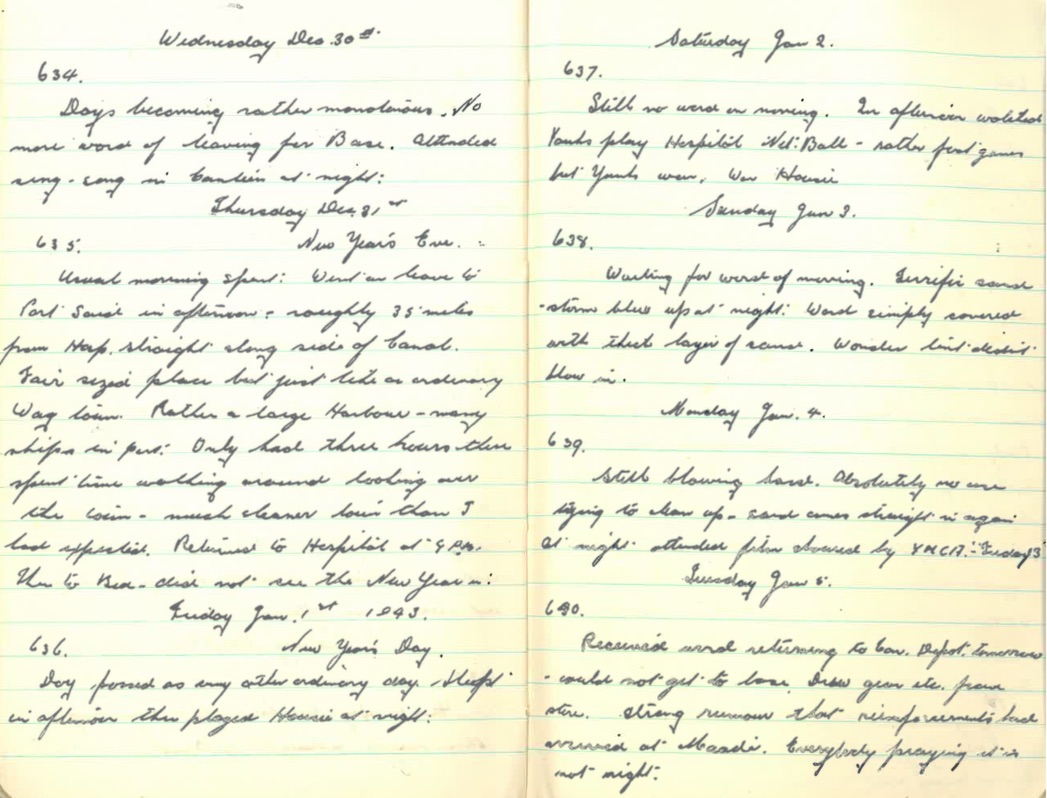 Wednesday Dec. 30th.
634.
Days becoming rather monotonous. No
more word of leaving for Base. Attended
sing-song in Canteen at night.
Thursday Dec. 31st
635. New Year's Eve.
Usual morning spent. Went on leave to
Port Said in afternoon - roughly 35 miles
from Hosp. straight along side of Canal.
Fair sized place but just like an ordinary
Wog town. Rather a large Harbour - many
ships in port. Only had three hours there
spent time walking around looking over
the town - much cleaner town than I
had expected. Returned to Hospital at 9 P.M.
then to Bed - did not see the New Year in.
Friday Jan. 1st 1943.
636. New Year's Day.
Day passed as any other ordinary day. Slept
in afternoon then played Housie at night.
Saturday Jan 2.
637.
Still no word on moving. In afternoon watched
Yanks play Hospital Net-Ball - rather good games
but Yanks won. Housie
Sunday Jan 3.
638.
Waiting for word of moving. Terrific sand
-storm blew up at night. Ward simply covered
with thick layer of sand. Wonder tent didn't
blow in.
Monday Jan. 4.
639.
Still blowing hard. Absolutely no use
trying to clean up - sand comes straight in again
At night attended film showed by YMCA.
Tuesday Jan 5.
690.
Received word returning to Con. Depot. tomorrow
- could not get to base. Drew gear etc. from
store. Strong rumour that reinforcements had
arrived at Maadi. Everybody praying it is
not right.